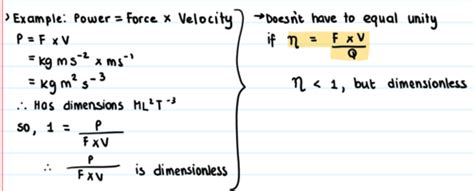 › Example: Power = Force x Velocity
P = F x V
= kg m s⁻² x ms⁻¹
= kg m² s⁻³
∴ Has dimensions ML²T⁻³
so, 1 = P / F x V
∴ P / F x V is dimensionless
→ Doesn't have to equal unity
if η = F x V / Q
η < 1, but dimensionless